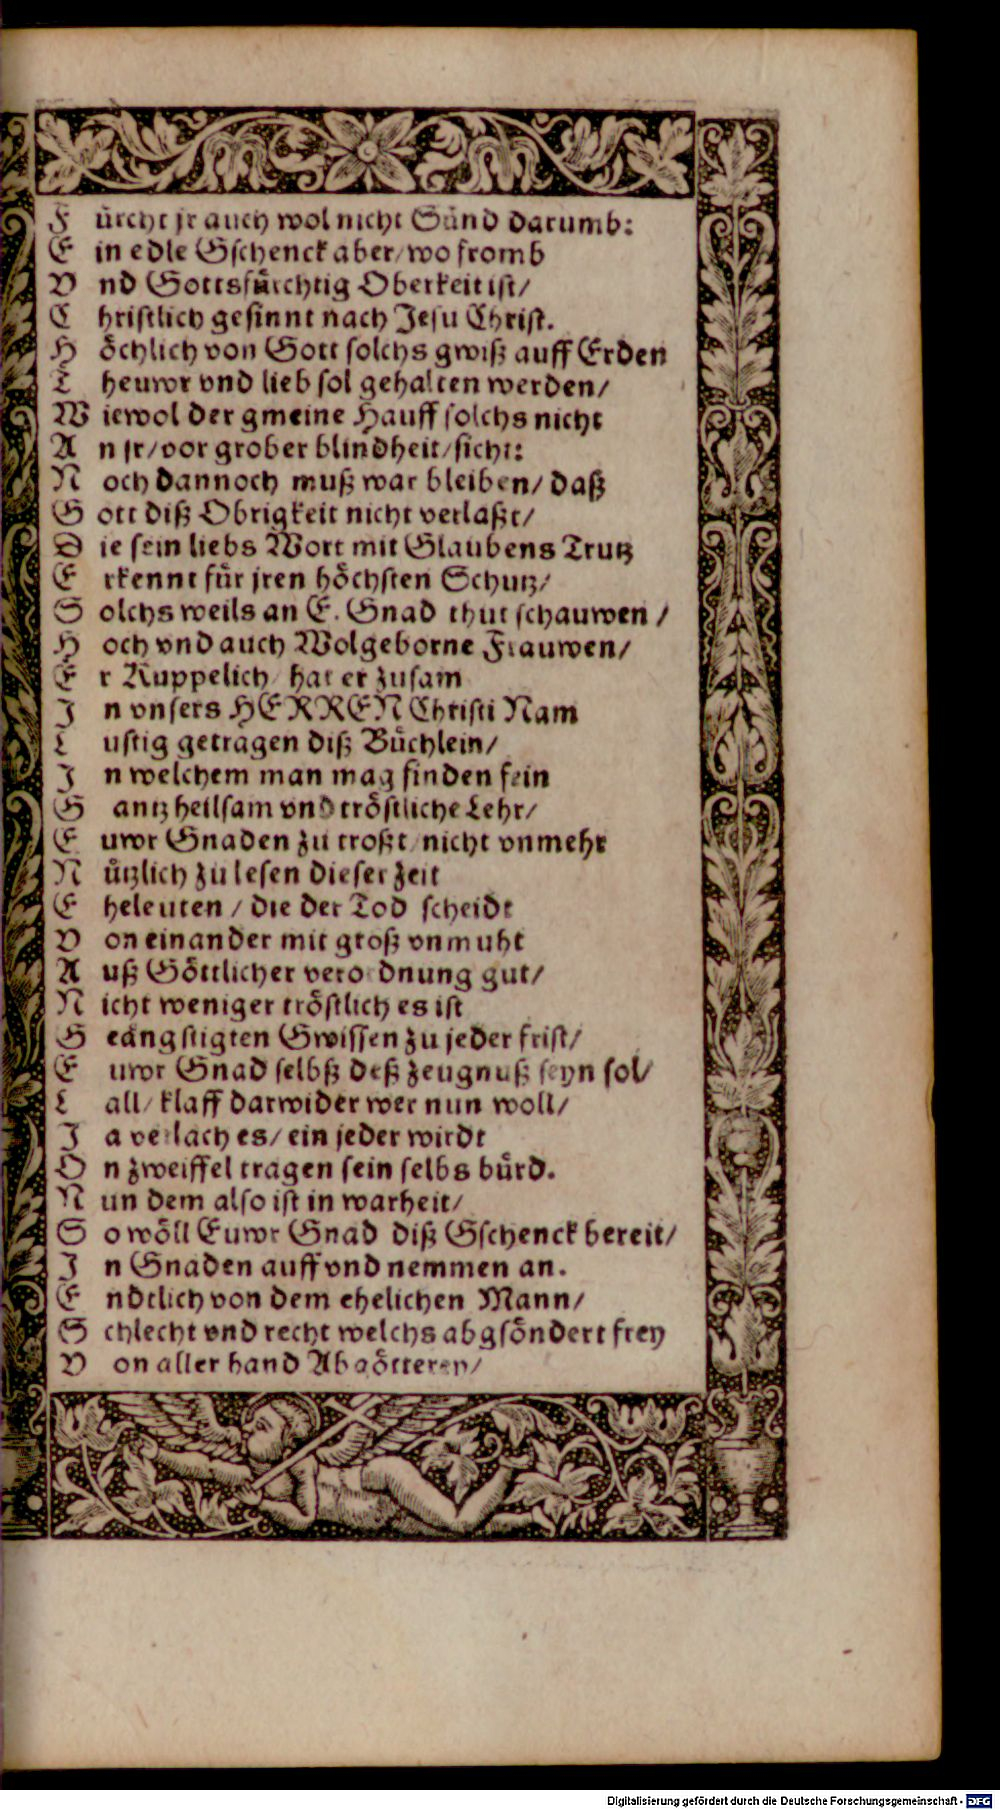 F ürcht jr auch wol nicht Sünd darumb:
E in edle Gschenck aber/ wo fromb
V nd Gottsfürchtig Oberkeit ist/
C hristlich gesinnt nach Jesu Christ.
H öchlich von Gott solchs gwiß auff Erden
T heuwr vnd lieb sol gehalten werden/
W iewol der gmeine Hauff solchs nicht
A n jr/ vor grober blindheit/ sicht:
N och dannoch muß war bleiben/ daß
G ott diß Obrigkeit nicht verlaßt/
D ie sein liebs Wort mit Glaubens Trutz
E rkennt für jren höchsten Schutz/
S olchs weils an E. Gnad thut schauwen/
H och vnd auch Wolgeborne Frauwen/
E r Ruppelich/ hat er zusam
J n vnsers HERREN Christi Nam
L ustig getragen diß Büchlein/
J n welchem man mag finden fein
G antz heilsam vnd tröstliche Lehr/
E uwr Gnaden zu troßt/ nicht vnmehr
N ützlich zu lesen dieser zeit
E heleuten/ die der Tod scheidt
V on einander mit groß vnmuht
A uß Göttlicher verordnung gut/
N icht weniger tröstlich es ist
G eängstigten Gwissen zu jeder frist/
E uwr Gnad selbß deß zeugnuß seyn sol/
L all/ klaff darwider wer nun woll/
J a verlach es/ ein jeder wirdt
O n zweiffel tragen sein selbs bürd.
N un dem also ist in warheit/
S o wöll Euwr Gnad diß Gschenck bereit/
J n Gnaden auff vnd nemmen an.
E ndtlich von dem ehelichen Mann/
S chlecht vnd recht welchs abgsöndert frey
V on aller hand Abgötterey/
Digitalisierung gefördert durch die Deutsche Forschungsgemeinschaft - DFG